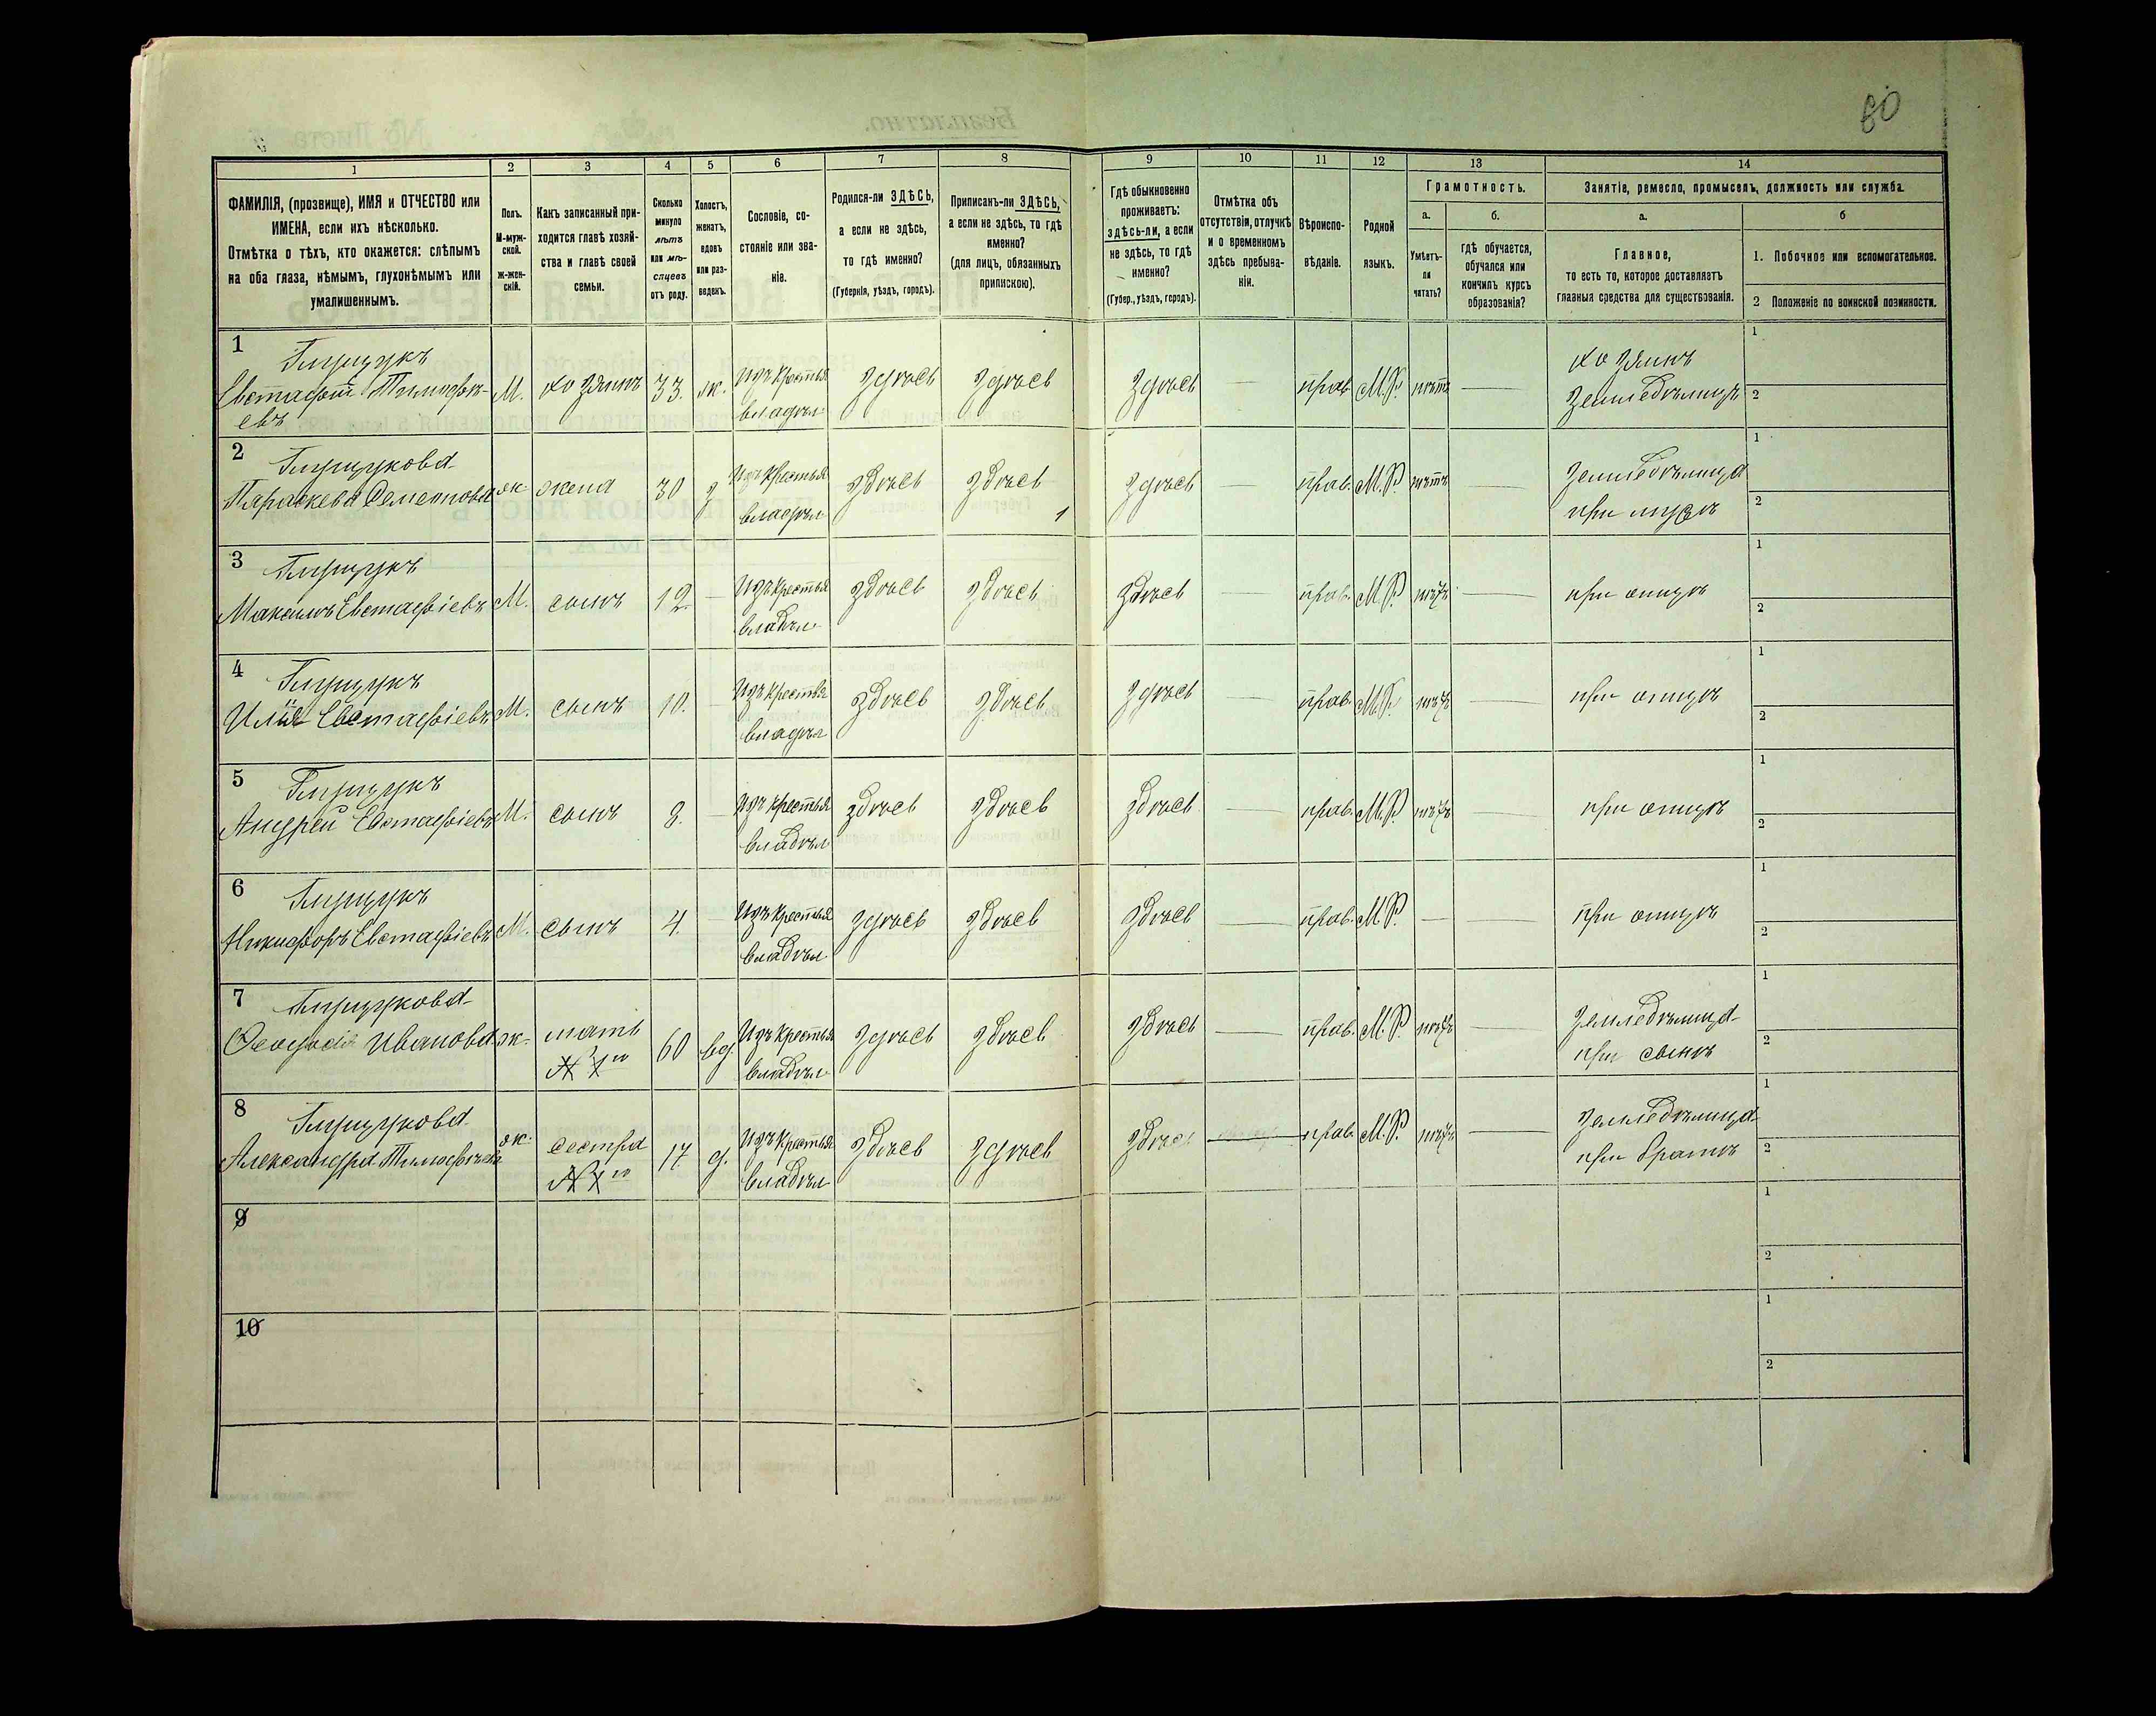 80
1
2
3
4
5
6
7
8
9
10
11
12
13
14
ФАМИЛІЯ, (прозвище), ИМЯ и ОТЧЕСТВО или
ИМЕНА, если ихъ нѣсколько.
Отмѣтка о тѣхъ, кто окажется: слѣпымъ
на оба глаза, нѣмымъ, глухонѣмымъ или
умалишеннымъ.
Полъ.
М-муж-
ской.
Ж-жен-
скій.
Какъ записанный при-
ходится главѣ хозяй-
ства и главѣ своей
семьи.
Сколько
минуло
лѣтъ
или мѣ-
сяцевъ
отъ роду.
Холостъ,
женатъ,
вдовъ
или раз-
веденъ.
Сословіе, со-
стояніе или зва-
ніе.
Родился-ли ЗДѢСЬ,
а если не здѣсь,
то гдѣ именно?
(Губернія, уѣздъ, городъ).
Приписанъ-ли ЗДѢСЬ,
а если не здѣсь, то гдѣ
именно?
(для лицъ, обязанныхъ
припискою).
Гдѣ обыкновенно
проживаетъ:
здѣсь-ли, а если
не здѣсь, то гдѣ
именно?
(Губер., уѣздъ, городъ).
Отмѣтка объ
отсутствіи, отлучкѣ
и о временномъ
здѣсь пребыва-
ніи.
Вѣроиспо-
вѣданіе.
Родной
языкъ.
Грамотность.
а.
Умѣетъ-
ли
читать?
б.
гдѣ обучается,
обучался или
кончилъ курсъ
образованія?
Занятіе, ремесло, промыселъ, должность или служба.
а.
Главное,
то есть то, которое доставляетъ
главныя средства для существованія.
б
1. Побочное или вспомогательное.
2 Положеніе по воинской повинности.
1
Евстафій Тимофѣ-
евъ
М. хозяинъ 33. ж. Изъ крестья здѣсь здѣсь здѣсь — прав. М.Р. нѣтъ — хозяинъ
владѣл. земледѣлецъ
1
2
2
Параскева Семенова ж жена 30 з Изъ крестья здѣсь здѣсь здѣсь — прав. М.Р. нѣтъ — земледѣлица
владѣл при мужѣ
1
2
3
Максимъ Евстафіевъ М. сынъ 12. — Изъ крестья здѣсь здѣсь здѣсь — прав. М.Р. нѣтъ — при отцѣ
владѣл.
1
2
4
Илія Евстафіевъ М. сынъ 10. — Изъ крестья здѣсь здѣсь здѣсь — прав. М.Р. нѣтъ — при отцѣ
владѣл
1
2
5
Андрей Евстафіевъ М. сынъ 8. — Изъ крестья здѣсь здѣсь здѣсь — прав. М.Р. нѣтъ — при отцѣ
владѣл
1
2
6
Никифоръ Евстафіевъ М. сынъ 4. — Изъ крестья здѣсь здѣсь здѣсь — прав. М.Р. — — при отцѣ
владѣл
1
2
7
Иванова ж. мать 60 вд. Изъ крестья здѣсь здѣсь здѣсь — прав. М.Р. нѣтъ — земледѣлица
владѣл. при сынѣ
1
2
8
Александра Тимофѣева ж. сестра 17 д. Изъ крестья здѣсь здѣсь здѣсь — прав. М.Р. нѣтъ — земледѣлица
владѣл при братѣ
1
2
9
1
2
10
1
2